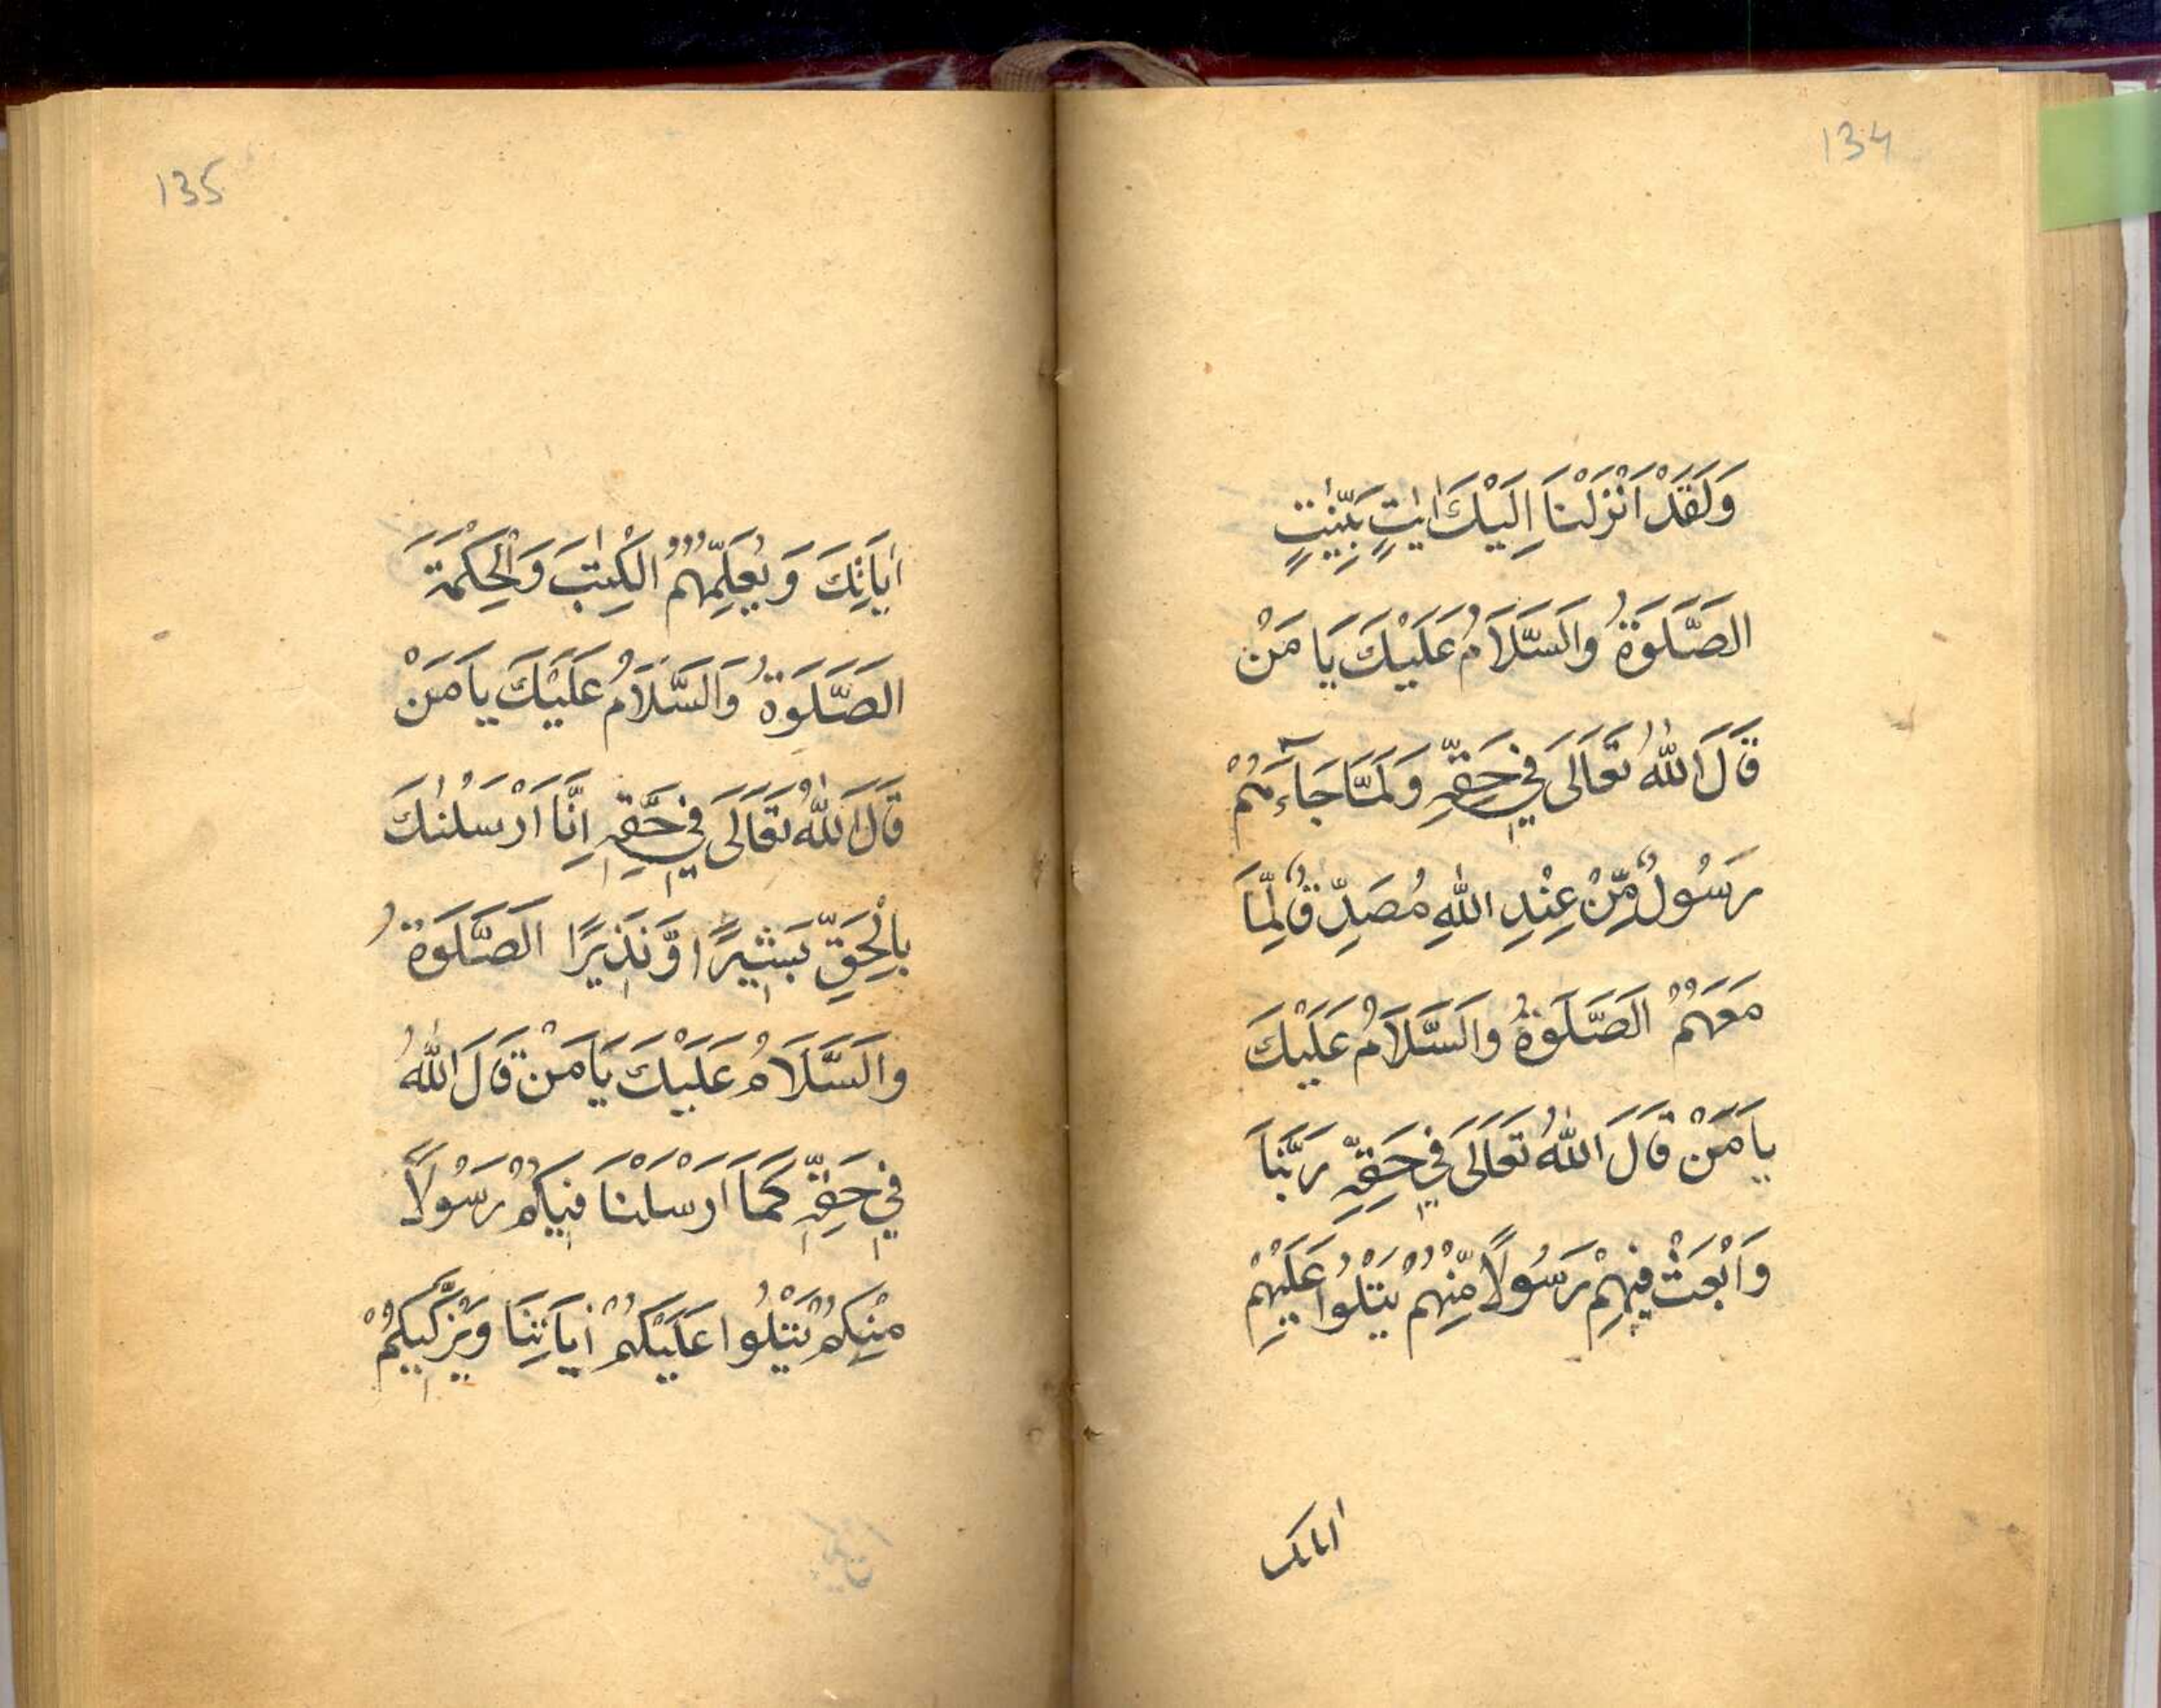 134
وَلَقَدْ اَنْزَلْنَا اِلَيْكَ اٰيٰتٍ بَيِّنٰتٍ
الصَّلَوٰةُ وَالسَّلَامُ عَلَيْكَ يَا مَنْ
قَالَ اللّٰهُ تَعَالَى فِي حَقِّهِ وَلَمَّا جَآءَهُمْ
رَسُولٌ مِّنْ عِنْدِ اللّٰهِ مُصَدِّقٌ لِّمَا
مَعَهُمْ الصَّلَوٰةُ وَالسَّلَامُ عَلَيْكَ
يَا مَنْ قَالَ اللّٰهُ تَعَالَى فِي حَقِّهِ رَبَّنَا
وَابْعَثْ فِيهِمْ رَسُولًا مِّنْهُمْ يَتْلُوا عَلَيْهِمْ
135
اٰيَاتِكَ وَيُعَلِّمُهُمُ الْكِتٰبَ وَالْحِكْمَةَ
الصَّلَوٰةُ وَالسَّلَامُ عَلَيْكَ يَا مَنْ
قَالَ اللّٰهُ تَعَالَى فِي حَقِّهِ اِنَّا اَرْسَلْنٰكَ
بِالْحَقِّ بَشِيرًا وَّنَذِيرًا الصَّلَوٰةُ
وَالسَّلَامُ عَلَيْكَ يَا مَنْ قَالَ اللّٰهُ
فِي حَقِّهِ كَمَا اَرْسَلْنَا فِيكُمْ رَسُولًا
مِنْكُمْ يَتْلُوا عَلَيْكُمْ اٰيَاتِنَا وَيُزَكِّيكُمْ